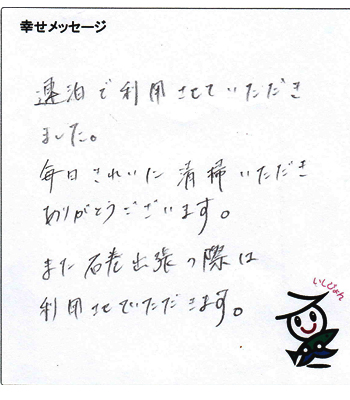 幸せメッセージ
連泊で利用させていただき
ました。
毎日きれいに清掃いただき
ありがとうございます。
また石巻出張の際は
利用させていただきます。
いしぴょん